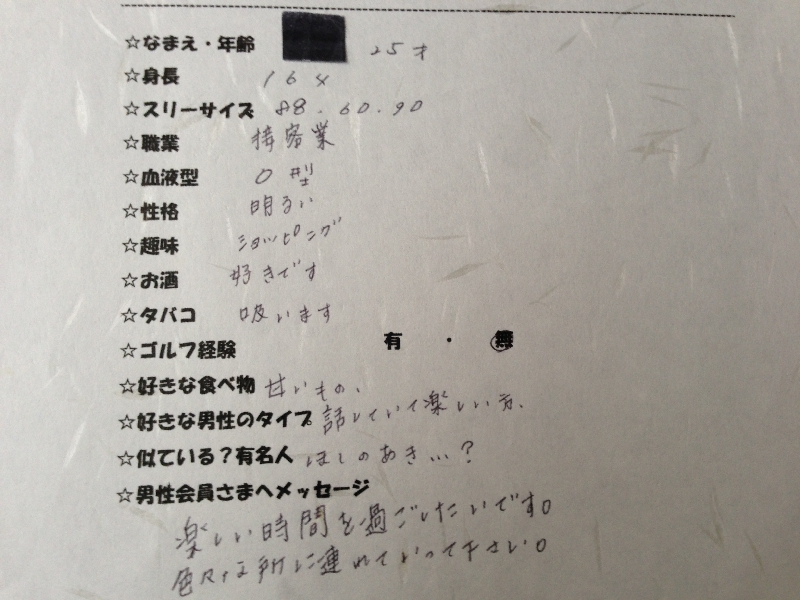 ☆なまえ・年齢 25才
☆身長 164
☆スリーサイズ 88.60.90
☆職業 接客業
☆血液型 O型
☆性格 明るい
☆趣味 ショッピング
☆お酒 好きです
☆タバコ 吸います
☆ゴルフ経験 有・無
☆好きな食べ物 甘いもの、
☆好きな男性のタイプ 話していて楽しい方、
☆似ている?有名人 ほしのあき…?
☆男性会員さまへメッセージ
楽しい時間を過ごしたいです。
色々な所に連れていって下さい。